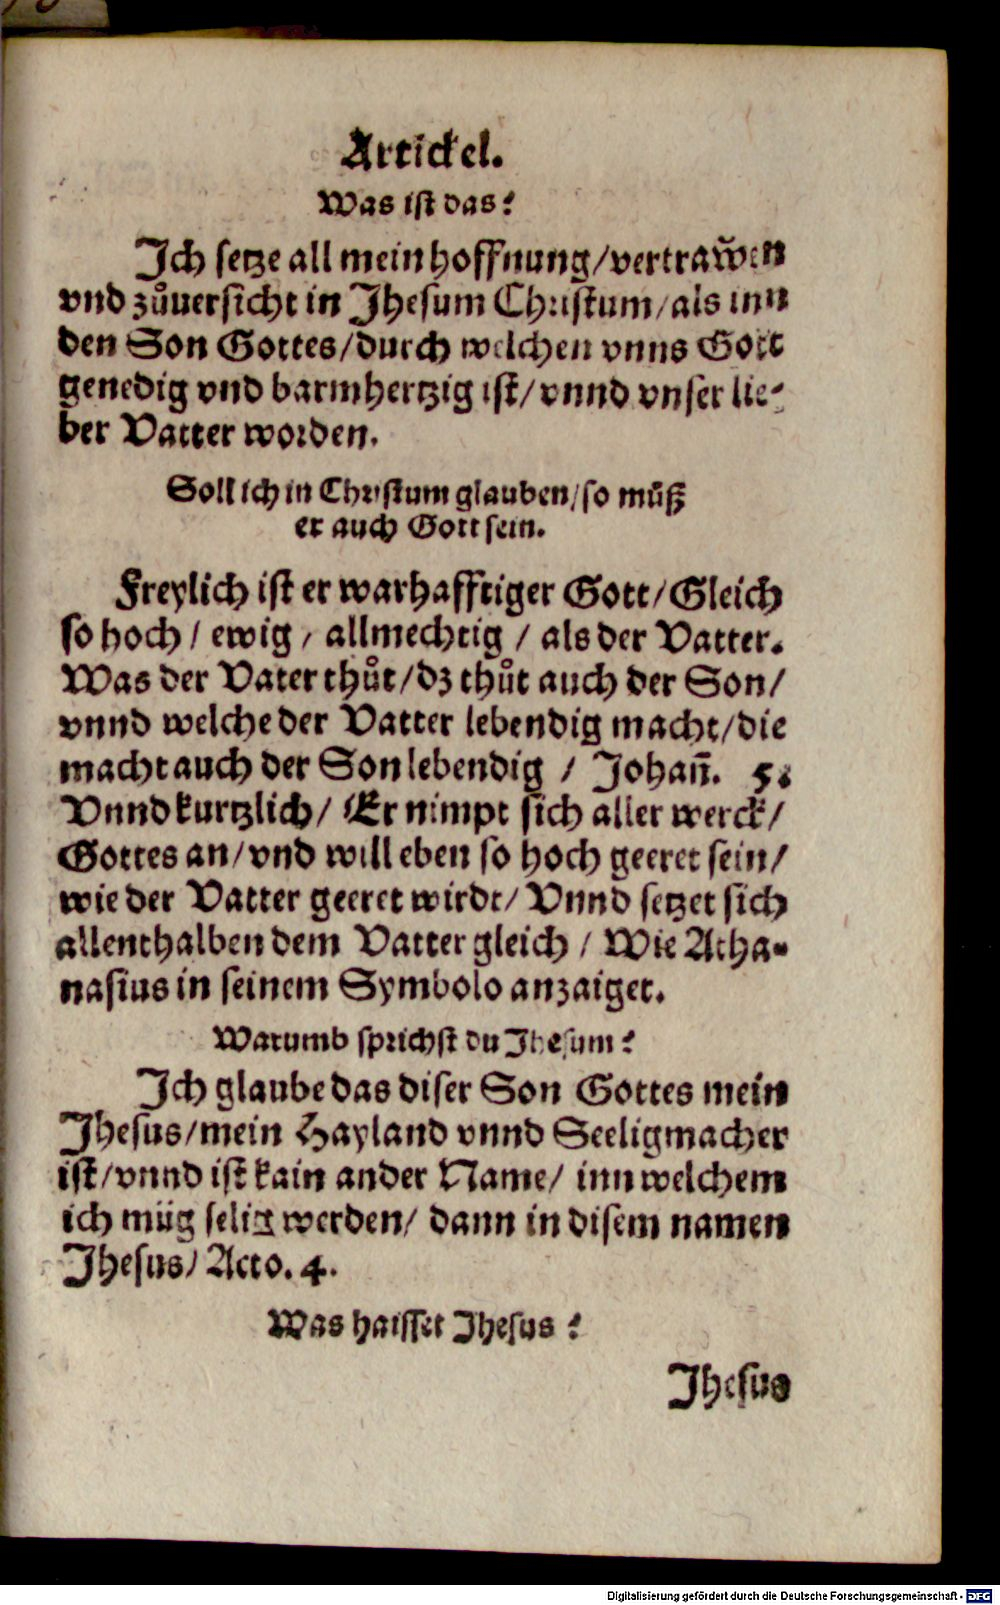 Artickel.
Was ist das?
Ich setze all mein hoffnung/vertraw̃en
vnd zůuersicht in Jhesum Christum/als inn
den Son Gottes/durch welchen vnns Gott
genedig vnd barmhertzig ist/vnnd vnser lie-
ber Vatter worden.
Soll ich in Christum glauben/so můß
er auch Gott sein.
Freylich ist er warhafftiger Gott/Gleich
so hoch/ ewig / allmechtig / als der Vatter.
Was der Vater thůt/dz thůt auch der Son/
vnnd welche der Vatter lebendig macht/die
macht auch der Son lebendig / Johañ. 5.
Vnnd kurtzlich/ Er nimpt sich aller werck/
Gottes an/vnd will eben so hoch geeret sein/
wie der Vatter geeret wirdt/ Vnnd setzet sich
allenthalben dem Vatter gleich / Wie Atha-
nasius in seinem Symbolo anzaiget.
Warumb sprichst du Jhesum?
Ich glaube das diser Son Gottes mein
Jhesus/mein Hayland vnnd Seeligmacher
ist/vnnd ist kain ander Name/ inn welchem
ich müg selig werden/ dann in disem namen
Jhesus/ Acto. 4.
Was haisset Jhesus?
Jhesus
Digitalisierung gefördert durch die Deutsche Forschungsgemeinschaft - DFG